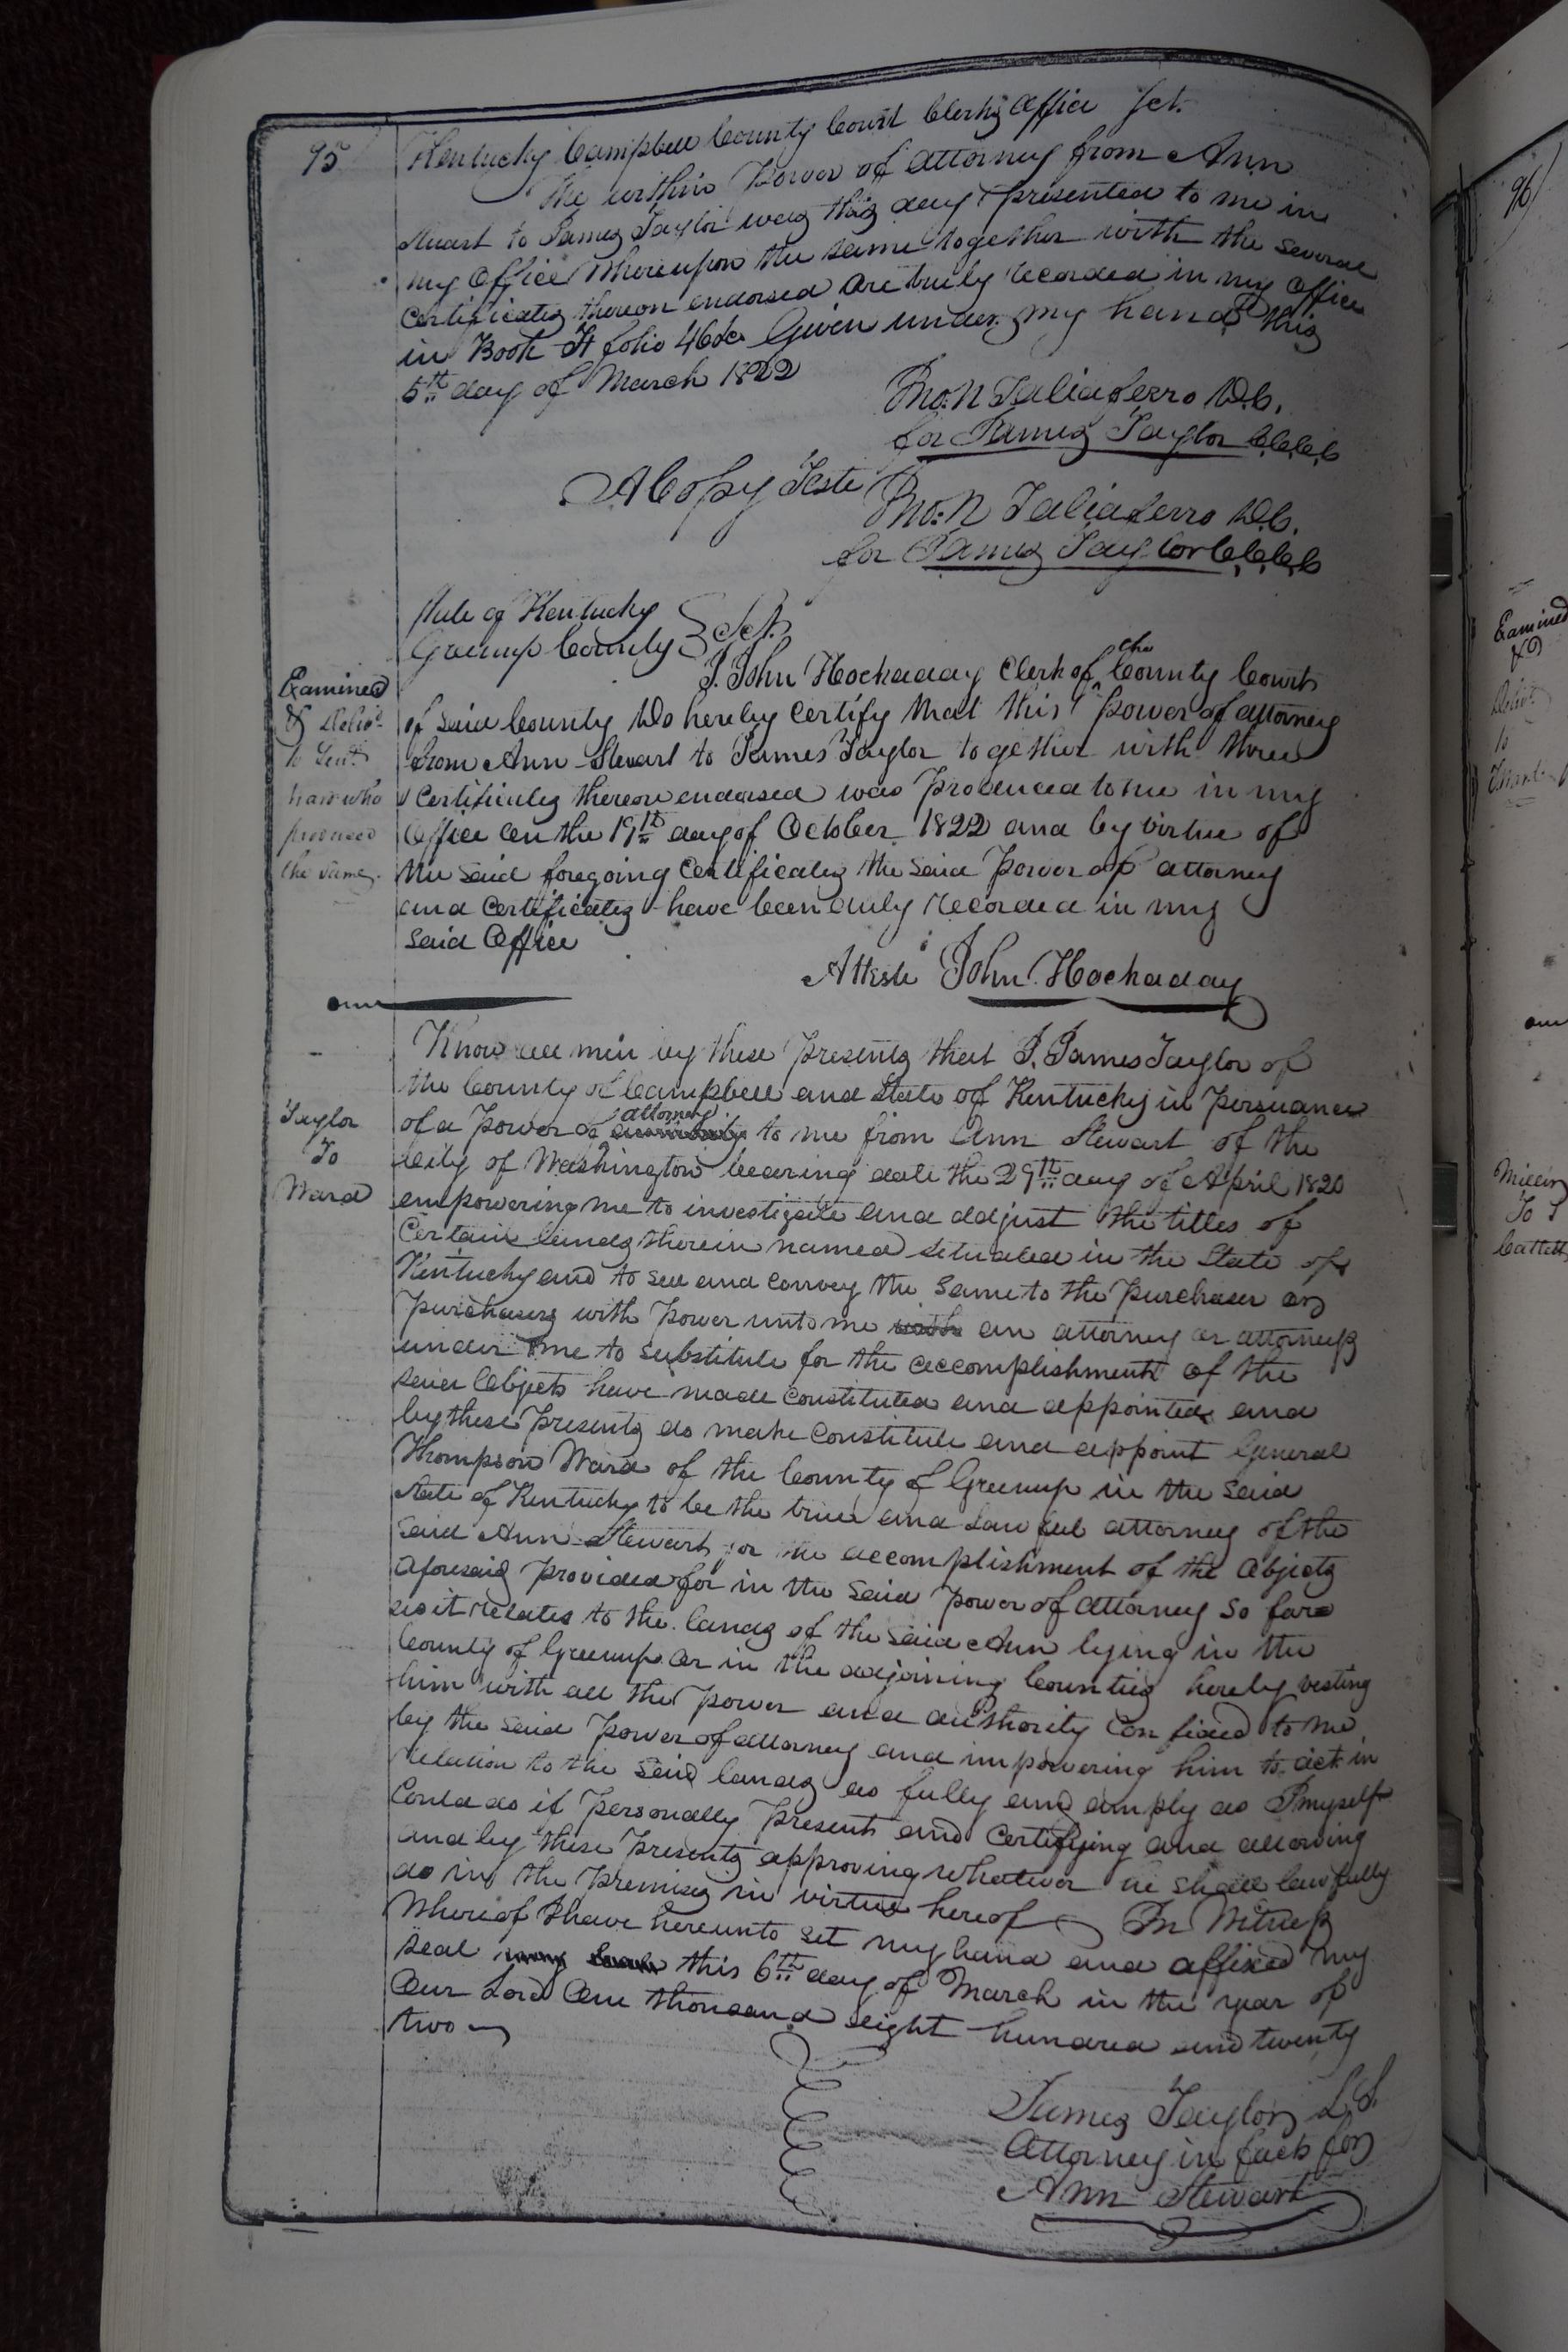 95
Kentucky Campbell County Court Clerks Office Sct.
The within Power of attorney from Ann
Stuart to James Taylor was this day presented to me in
my Office Whereupon the same together with the several
Certificates thereon endorsed are truly recorded in my office
in Book A folio 46&c Given under my hand this
5th day of March 1822
Jno. N Taliaferro D.C.
for James Taylor C.C.C.C
A Copy Teste
Jno. N Taliaferro D.C.
for James Taylor C.C.C.C
State of Kentucky
Greenup County } Sct.
I. John Hockaday Clerk of the County Court
of said County Do hereby Certify that this power of attorney
from Ann Stewart to James Taylor together with three
Certificates thereon endorsed was Produced to me in my
Office on the 19th day of October 1822 and by virtue of
the said foregoing Certificates the said Power of attorney
and Certificates have been duly recorded in my
said Office
Attest John Hockaday
Examined
& Deliv.d
to
who
produced
the same.
Taylor
To
Ward
Know all men by these presents that I. James Taylor of
the County of Campbell and State of Kentucky in Persuance
of a Power of attorney to me from Ann Stewart of the
City of Washington bearing date the 29th day of April 1820
empowering me to investigate and adjust the titles of
Certain lands therein named situated in the State of
Kentucky and to sell and convey the same to the purchaser or
purchasers with power unto me with an attorney or attorneys
under me to substitute for the accomplishment of the
said Objects have made constituted and appointed and
by these presents do make Constitute and appoint General
Thompson Ward of the County of Greenup in the said
State of Kentucky to be the true and Lawful attorney of the
said Ann Stewart for the accomplishment of the Objects
aforesaid provided for in the said power of attorney so far
as it relates to the lands of the said Ann lying in the
County of Greenup or in the adjoining Counties hereby vesting
him with all the power and authority confided to me
by the said power of attorney and impowering him to act in
relation to the said lands as fully and amply as I myself
Could do if personally present and Certifying and allowing
and by these presents approving whatever he shall lawfully
do in the premises in virtue hereof In Witness
Whereof I have hereunto set my hand and affixed my
seal this 6th day of March in the year of
Our Lord One thousand eight hundred and twenty
two
James Taylor L.S.
Attorney in fact for
Ann Stewart
96
Examined
&D
Deliv.d
to
To